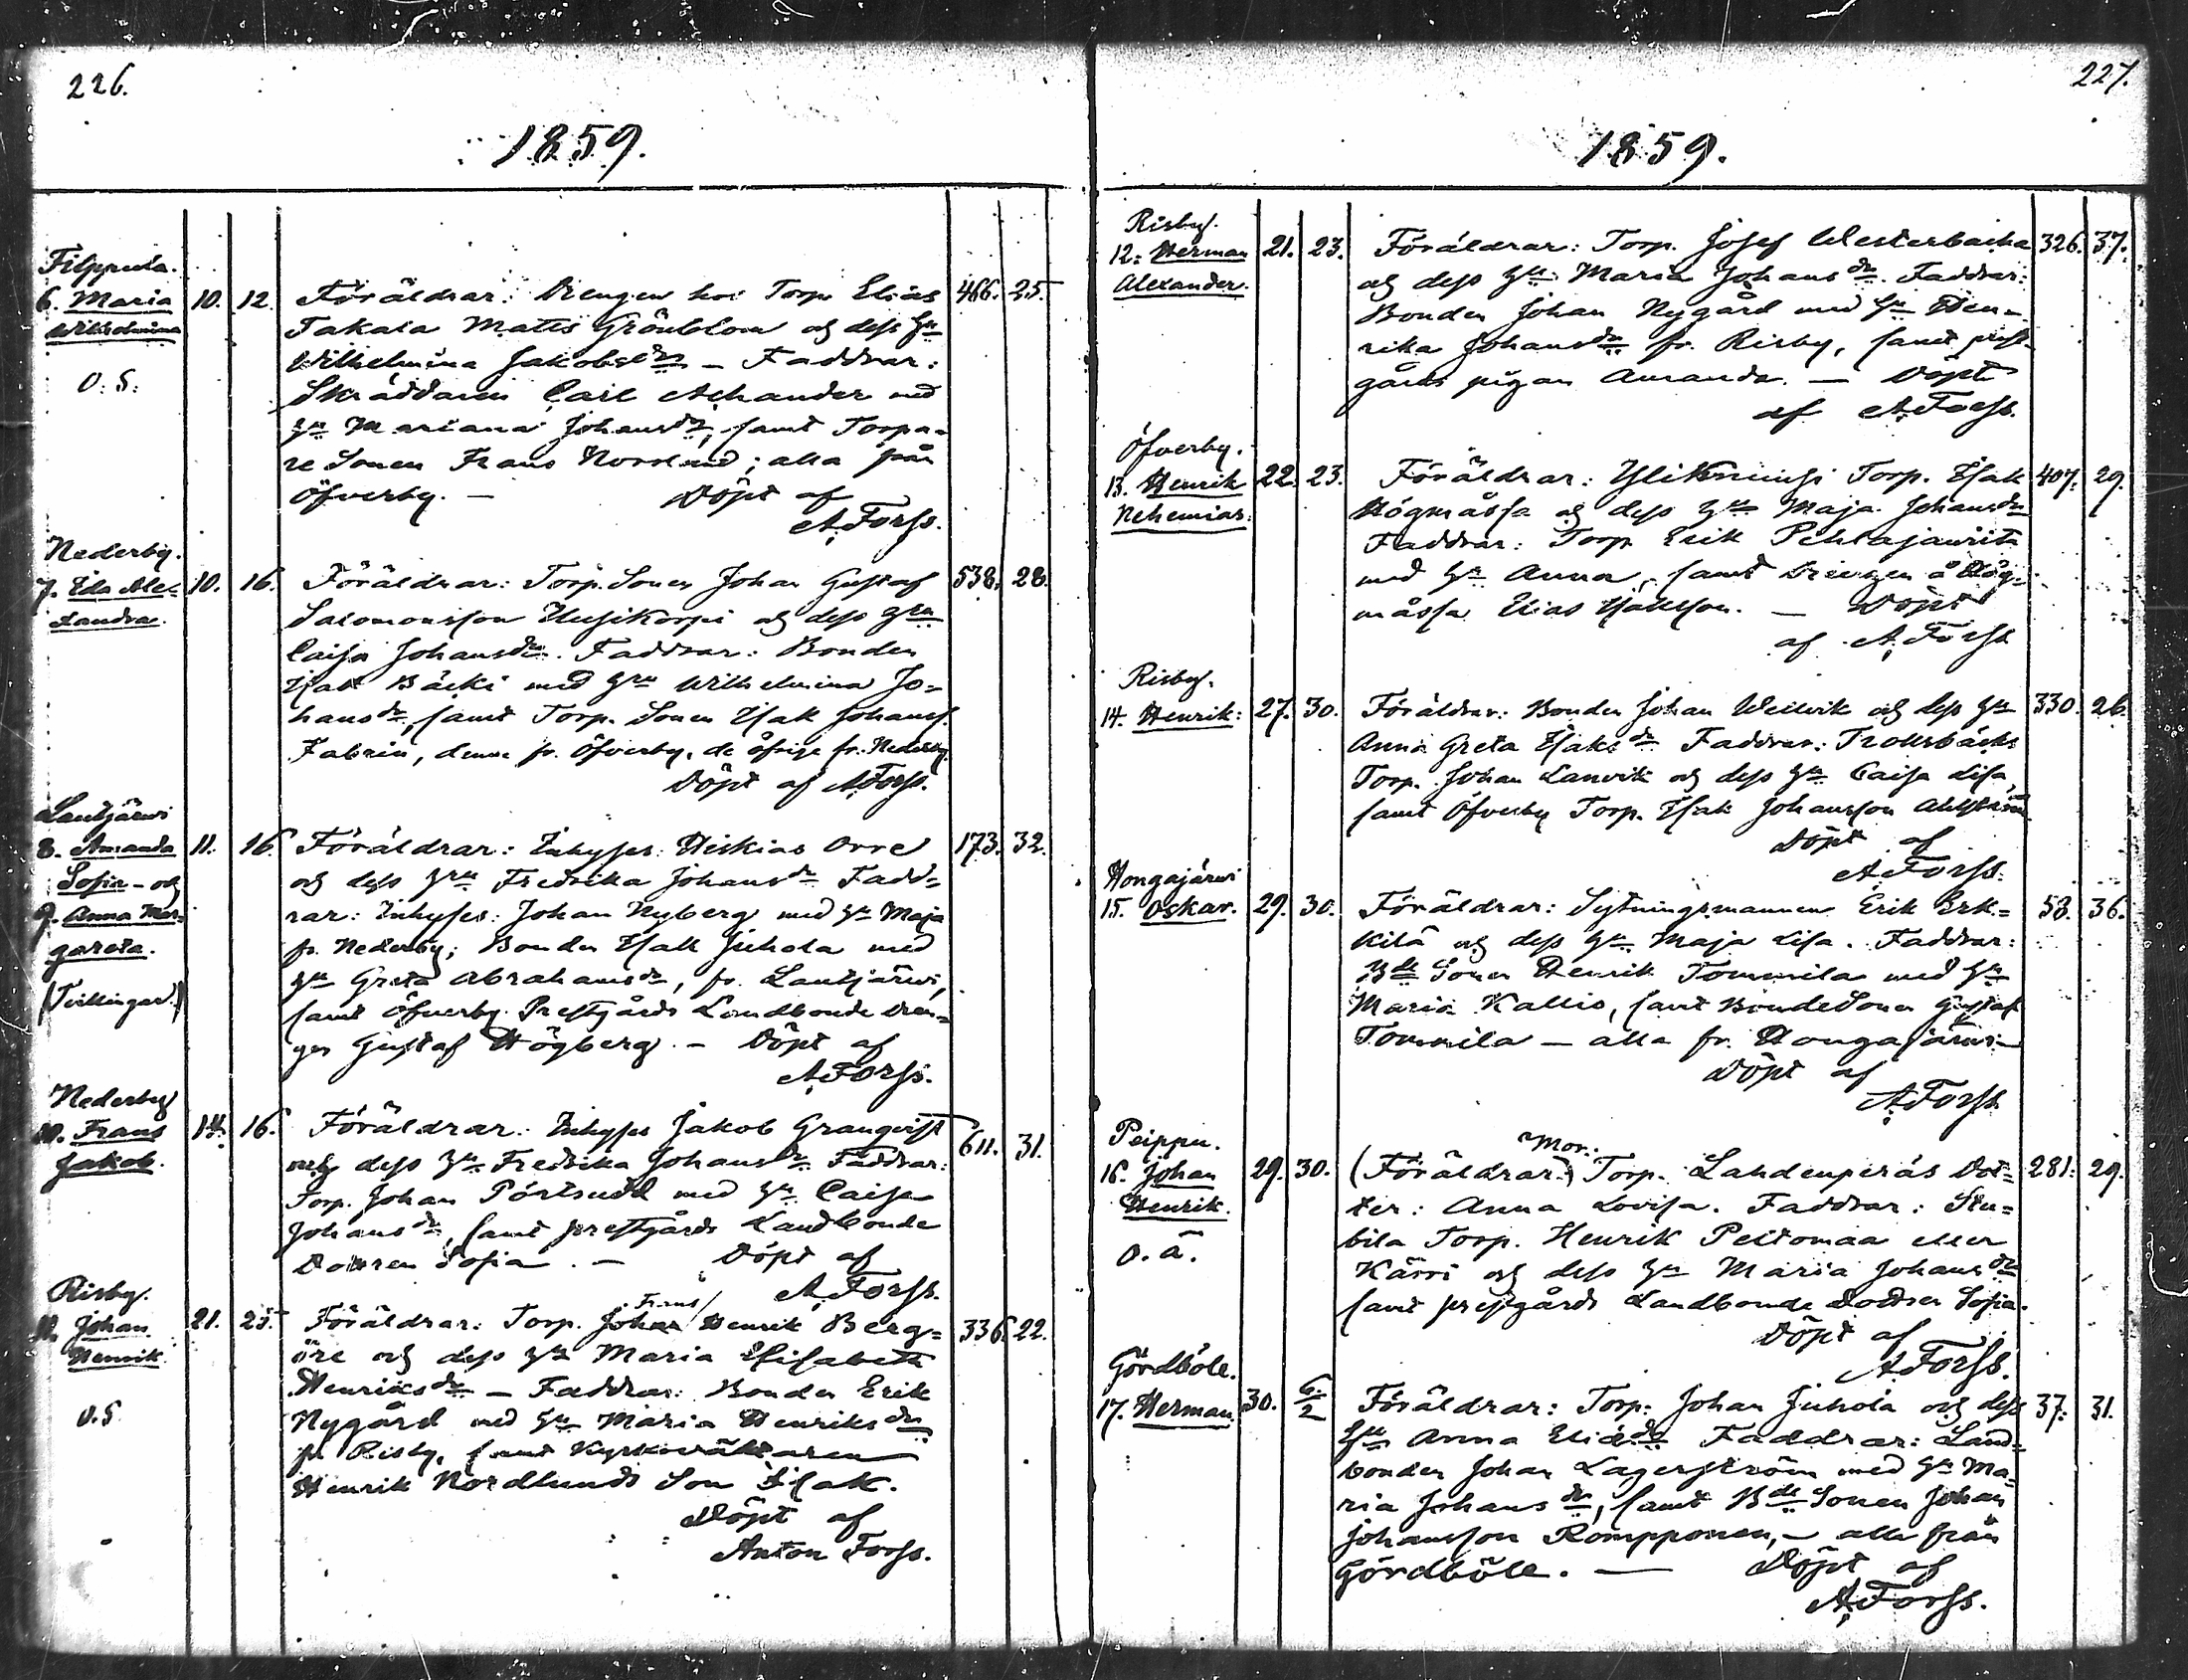 226.
1859.
Filppula.
6. Maria
Wilhelmina
O. S.
10. 12.
Föräldrar: Drengen hos Torp. Elias
Takala Matts Grönblom och dess Hu
Wilhelmina Jakobsdr. — Faddrar:
Skräddaren Carl Achander med
Hu Mariana Johansdr, samt Torpa-
re Sonen Frans Norrlund; alla från
Öfverby. — Döpt af
A. Forss.
466. 25.
Nederby.
7. Ida Alex-
andra.
10. 16.
Föräldrar: Torp. Sonen Johan Gustaf
Salomonsson Uusikorpi och dess Hru
Caisa Johansdr. Faddrar: Bonden
Isak Bäcki med Hru Wilhelmina Jo-
hansdr, samt Torp. Sonen Isak Johanss.
Fabrin, denne fr. Öfverby, de öfriga fr. Nederby.
Döpt af A. Forss.
538. 28.
Lautjärwi
8. Amanda
Sofia - och
9. Anna Mar-
gareta.
(Tvillingar.)
11. 16.
Föräldrar: Inhyses: Hiskias Orre
och dess Hru Fredrika Johansdr Fadd-
rar: Inhyses: Johan Nyberg med Hu Maja
fr. Nederby; Bonden Isak Juhola med
Hu Greta Abrahamsdr, fr. Lautjärwi,
samt Öfverby Prestgårds Landbonde Dren-
gen Gustaf Högberg. — Döpt af
A. Forss.
173. 32.
Nederby
10. Frans
Jakob.
14. 16.
Föräldrar: Inhyses Jakob Granqvist
och dess Hu Fredrika Johansdr. Faddrar:
Torp. Johan Pörtsudd med Hu Caisa
Johansdr, samt prestgårds Landbonde
Dottren Sofia. — Döpt af
A. Forss.
611. 31.
Risby.
11. Johan
Henrik
O. S.
21. 23.
Frans
Föräldrar: Torp. Johan Henrik Berg-
öre och dess Hu Maria Elisabeth
Henriksdr. — Faddrar: Bonden Erik
Nygård med Hu Maria Henriksdr
fr. Risby, samt Kyrkoväktaren
Henrik Nordlunds Son Isak.
Döpt af
Anton Forss.
336. 22.
227.
1859.
Risby.
12. Herman
Alexander.
21. 23.
Föräldrar: Torp. Josef Westerbacka
och dess Hu Maria Johansdr. Faddrar:
Bonden Johan Nygård med Hu Hen-
rika Johansdr. fr. Risby, samt prest-
gårds pigan Amanda. — Döpt
af A. Forss.
326. 37.
Öfverby.
13. Henrik
Nehemias.
22. 23.
Föräldrar: Torp. Isak
Högmåssa och dess Hu Maja Johansdr
Faddrar: Torp. Erik
med Hu Anna, samt Drengen å Hög-
måssa Elias Isaksson. — Döpt
af A. Forss
407. 29.
Risby.
14. Henrik:
27. 30.
Föräldrar: Bonden Johan Wellvik och dess Hu
Anna Greta Isaksdr. Faddrar: Trollsbäcks
Torp. Johan Lanvik och dess Hu Caisa Lisa,
samt Öfverby Torp. Isak Johansson Ahlström
Döpt af
A. Forss.
330. 26.
Hongajärwi
15. Oskar.
29. 30.
Föräldrar: Sytningsmannen Erik Erk-
kilä och dess Hu Maja Lisa. Faddrar:
Bde Sonen Henrik Tommila med Hu
Maria Kallio, samt BondeSonen Gustaf
Tommila — alla fr. Hongajärwi —
Döpt af
A. Forss
53. 36.
Peippu.
16. Johan
Henrik.
O. ä.
29. 30.
Mor:
(Föräldrar:) Torp. Lahdenperäs Dot-
ter: Anna Lovisa. Faddrar: Stu-
bila Torp. Henrik Peltomaa eller
Kärri och dess Hu Maria Johansdr
samt prestgårds Landbonde Dottren Sofia.
Döpt af
A. Forss.
281. 29.
Gördböle.
17. Herman.
30. 6/2
Föräldrar: Torp. Johan Juhola och dess
Hu Anna Eliædr Faddrar: Land-
bonden Johan Lagerström med Hu Ma-
ria Johansdr, samt Bde Sonen Johan
Johansson Rompponen, — alla från
Gördböle. — Döpt af
A. Forss.
37. 31.